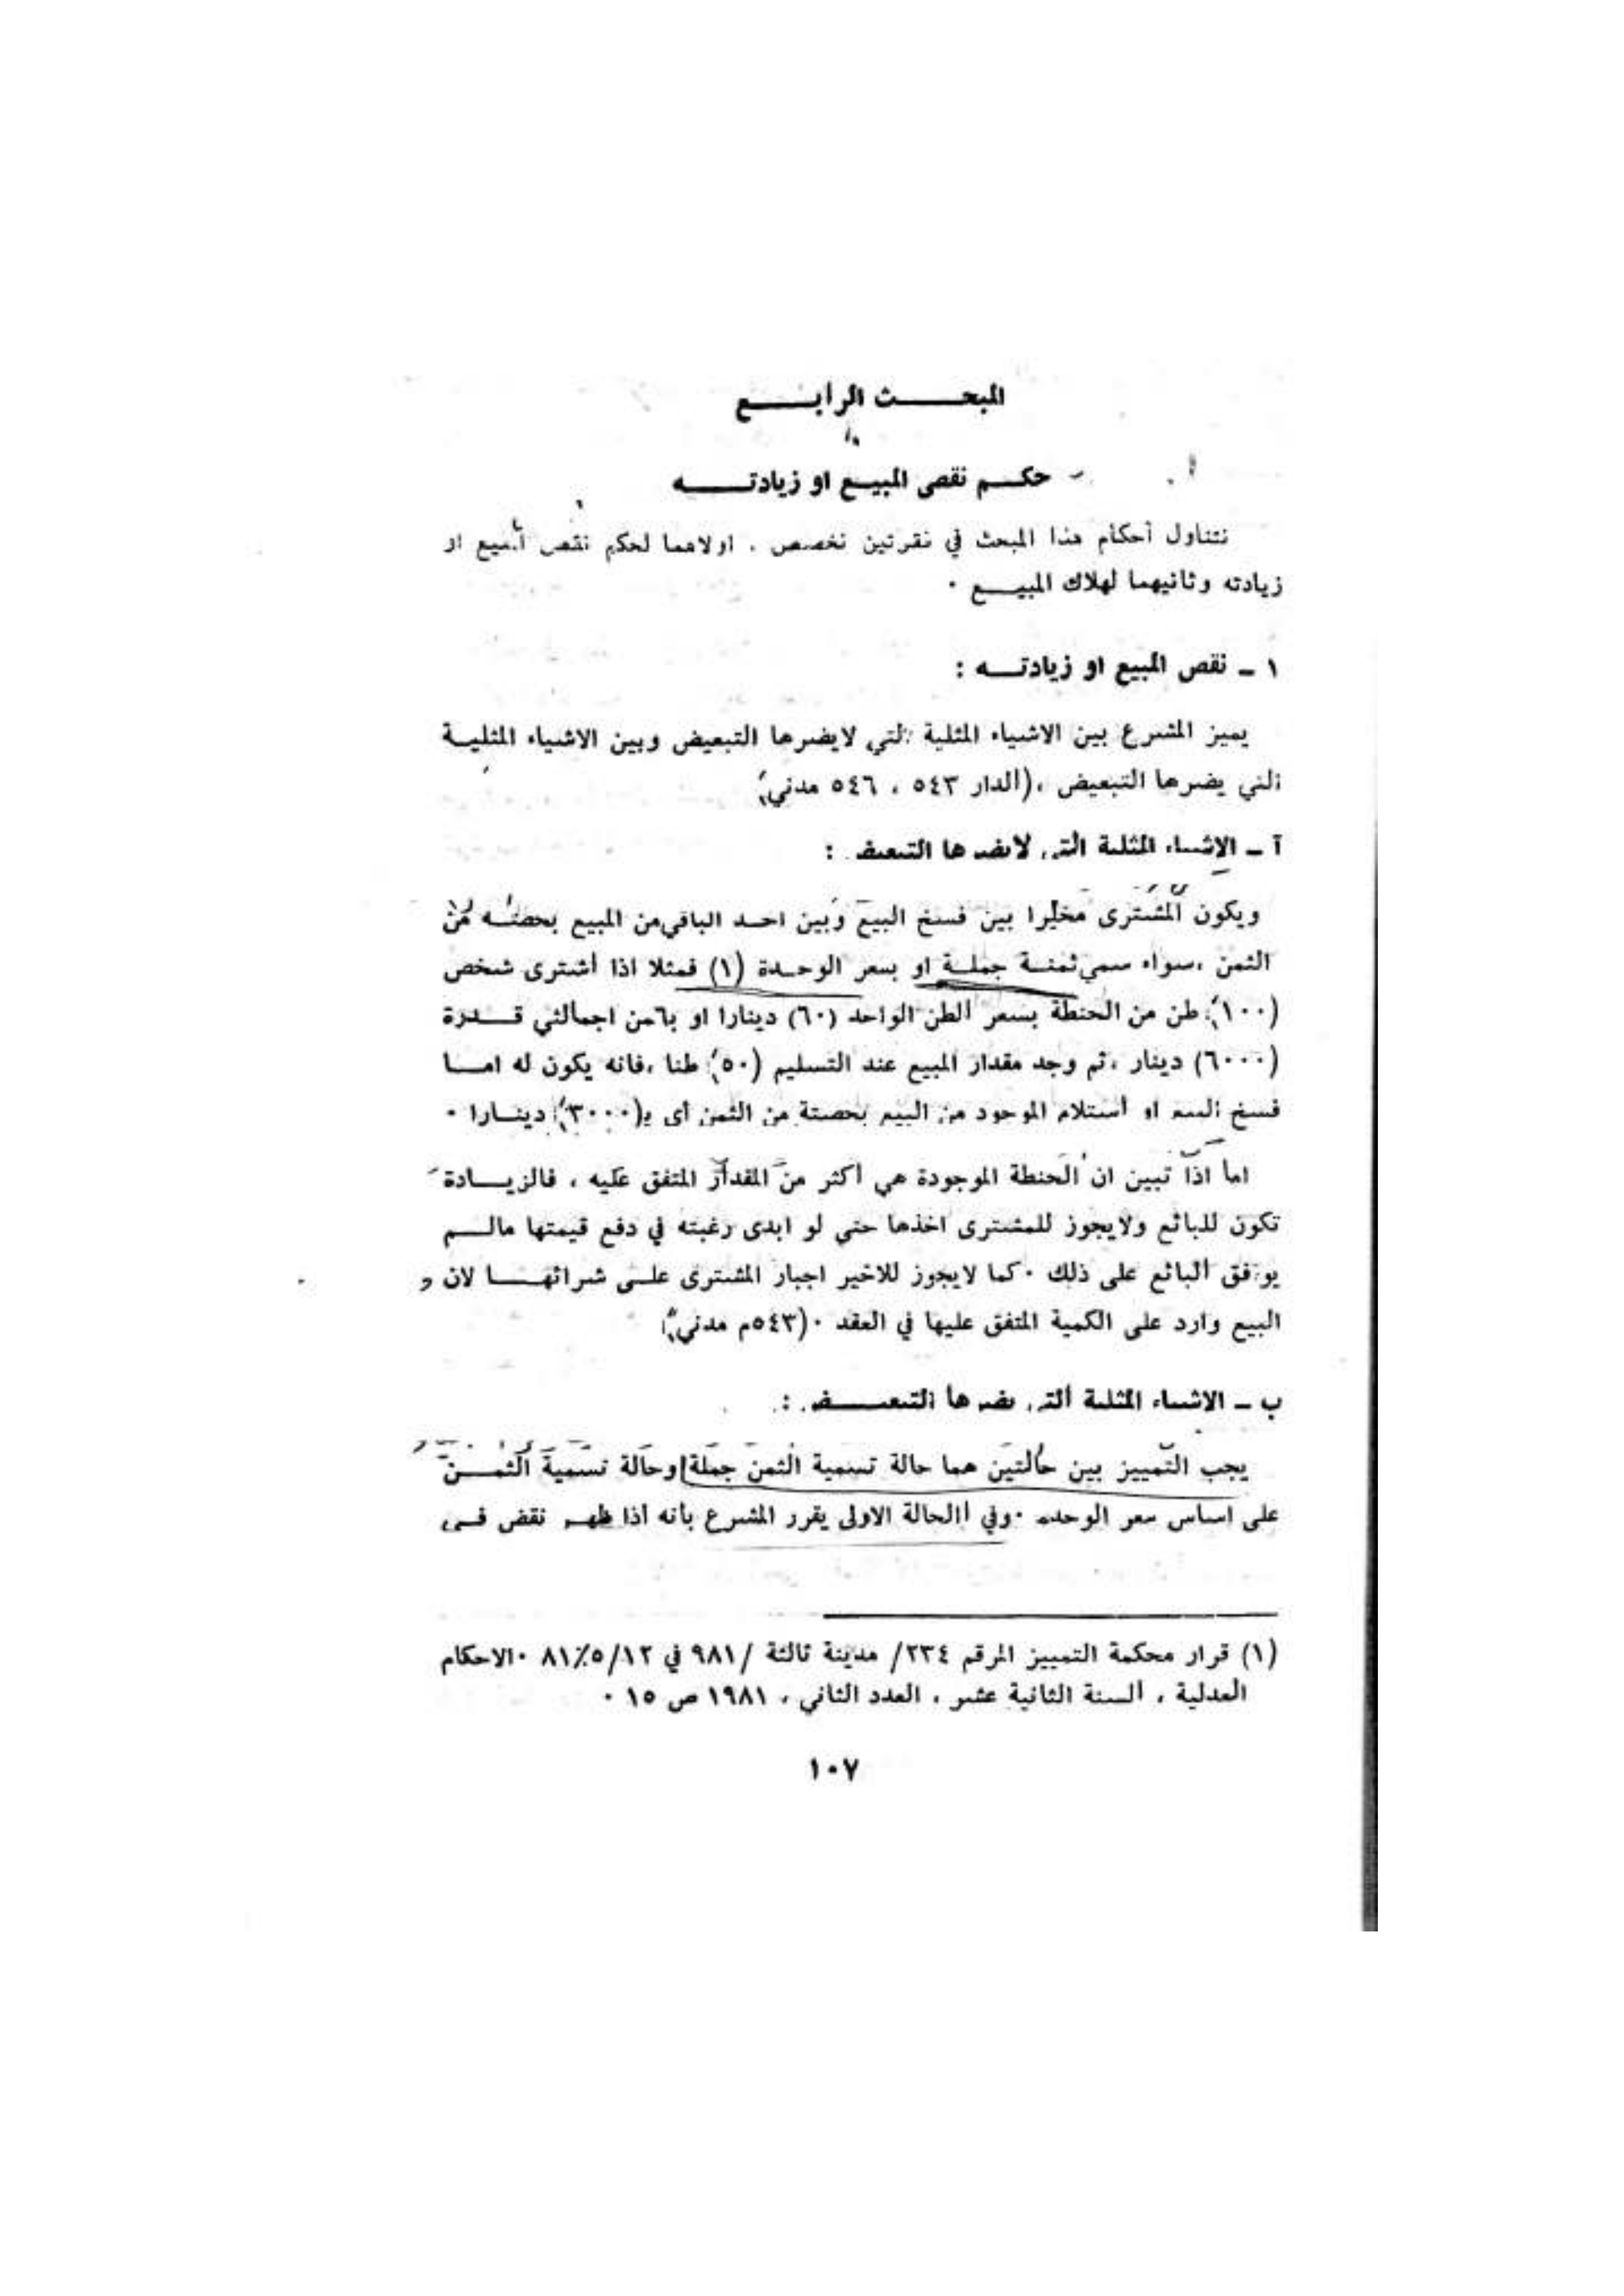 المبحث الرابع
حكم نقص المبيع او زيادته
نتناول أحكام هذا المبحث في فقرتين نخصص . اولاهما لحكم نقص المبيع او
زيادته وثانيهما لهلاك المبيع .
١ ـ نقص المبيع او زيادته :
يميز المشرع بين الاشياء المثلية التي لايضرها التبعيض وبين الاشياء المثلية
التي يضرها التبعيض ، (الدار ٥٤٣ ، ٥٤٦ مدني)
آ ـ الاشياء المثلية التي لايضرها التبعيض :
ويكون المشترى مخيرا بين فسخ البيع وبين احد الباقي من المبيع بحصته من
الثمن ،سواء سمي ثمنة جملة او بسعر الوحدة (١) فمثلا اذا أشترى شخص
(١٠٠) طن من الحنطة بسعر الطن الواحد (٦٠) دينارا او اجمالي قدرة
(٦٠٠٠) دينار ،ثم وجد مقدار المبيع عند التسليم (٥٠) طنا ،فانه يكون له اما
فسخ البيع او أستلام الموجود من البيع بحصتة من الثمن أى بـ(٣٠٠٠) دينارا .
اما اذا تبين ان الحنطة الموجودة هي أكثر من المقدار المتفق عليه ، فالزيادة
تكون للبائع ولايجوز للمشترى اخذها حتى لو ابدى رغبته في دفع قيمتها مالم
يوافق البائع على ذلك . كما لايجوز للاخير اجبار المشترى على شرائها لان
البيع وارد على الكمية المتفق عليها في العقد . (٥٤٣م مدني)
ب ـ الاشياء المثلية التي يضرها التبعيض :
يجب التمييز بين حالتين هما حالة تسمية الثمن جملة وحالة تسمية الثمن
على اساس سعر الوحده .وفي االحالة الاولى يقرر المشرع بأنه اذا ظهر نقض في
(١) قرار محكمة التمييز المرقم ٢٣٤/ مدينة ثالثة /٩٨١ في ٨١٪٥/١٢ .الاحكام
العدلية ، السنة الثانية عشر ، العدد الثاني ، ١٩٨١ ص ١٥ .
١٠٧